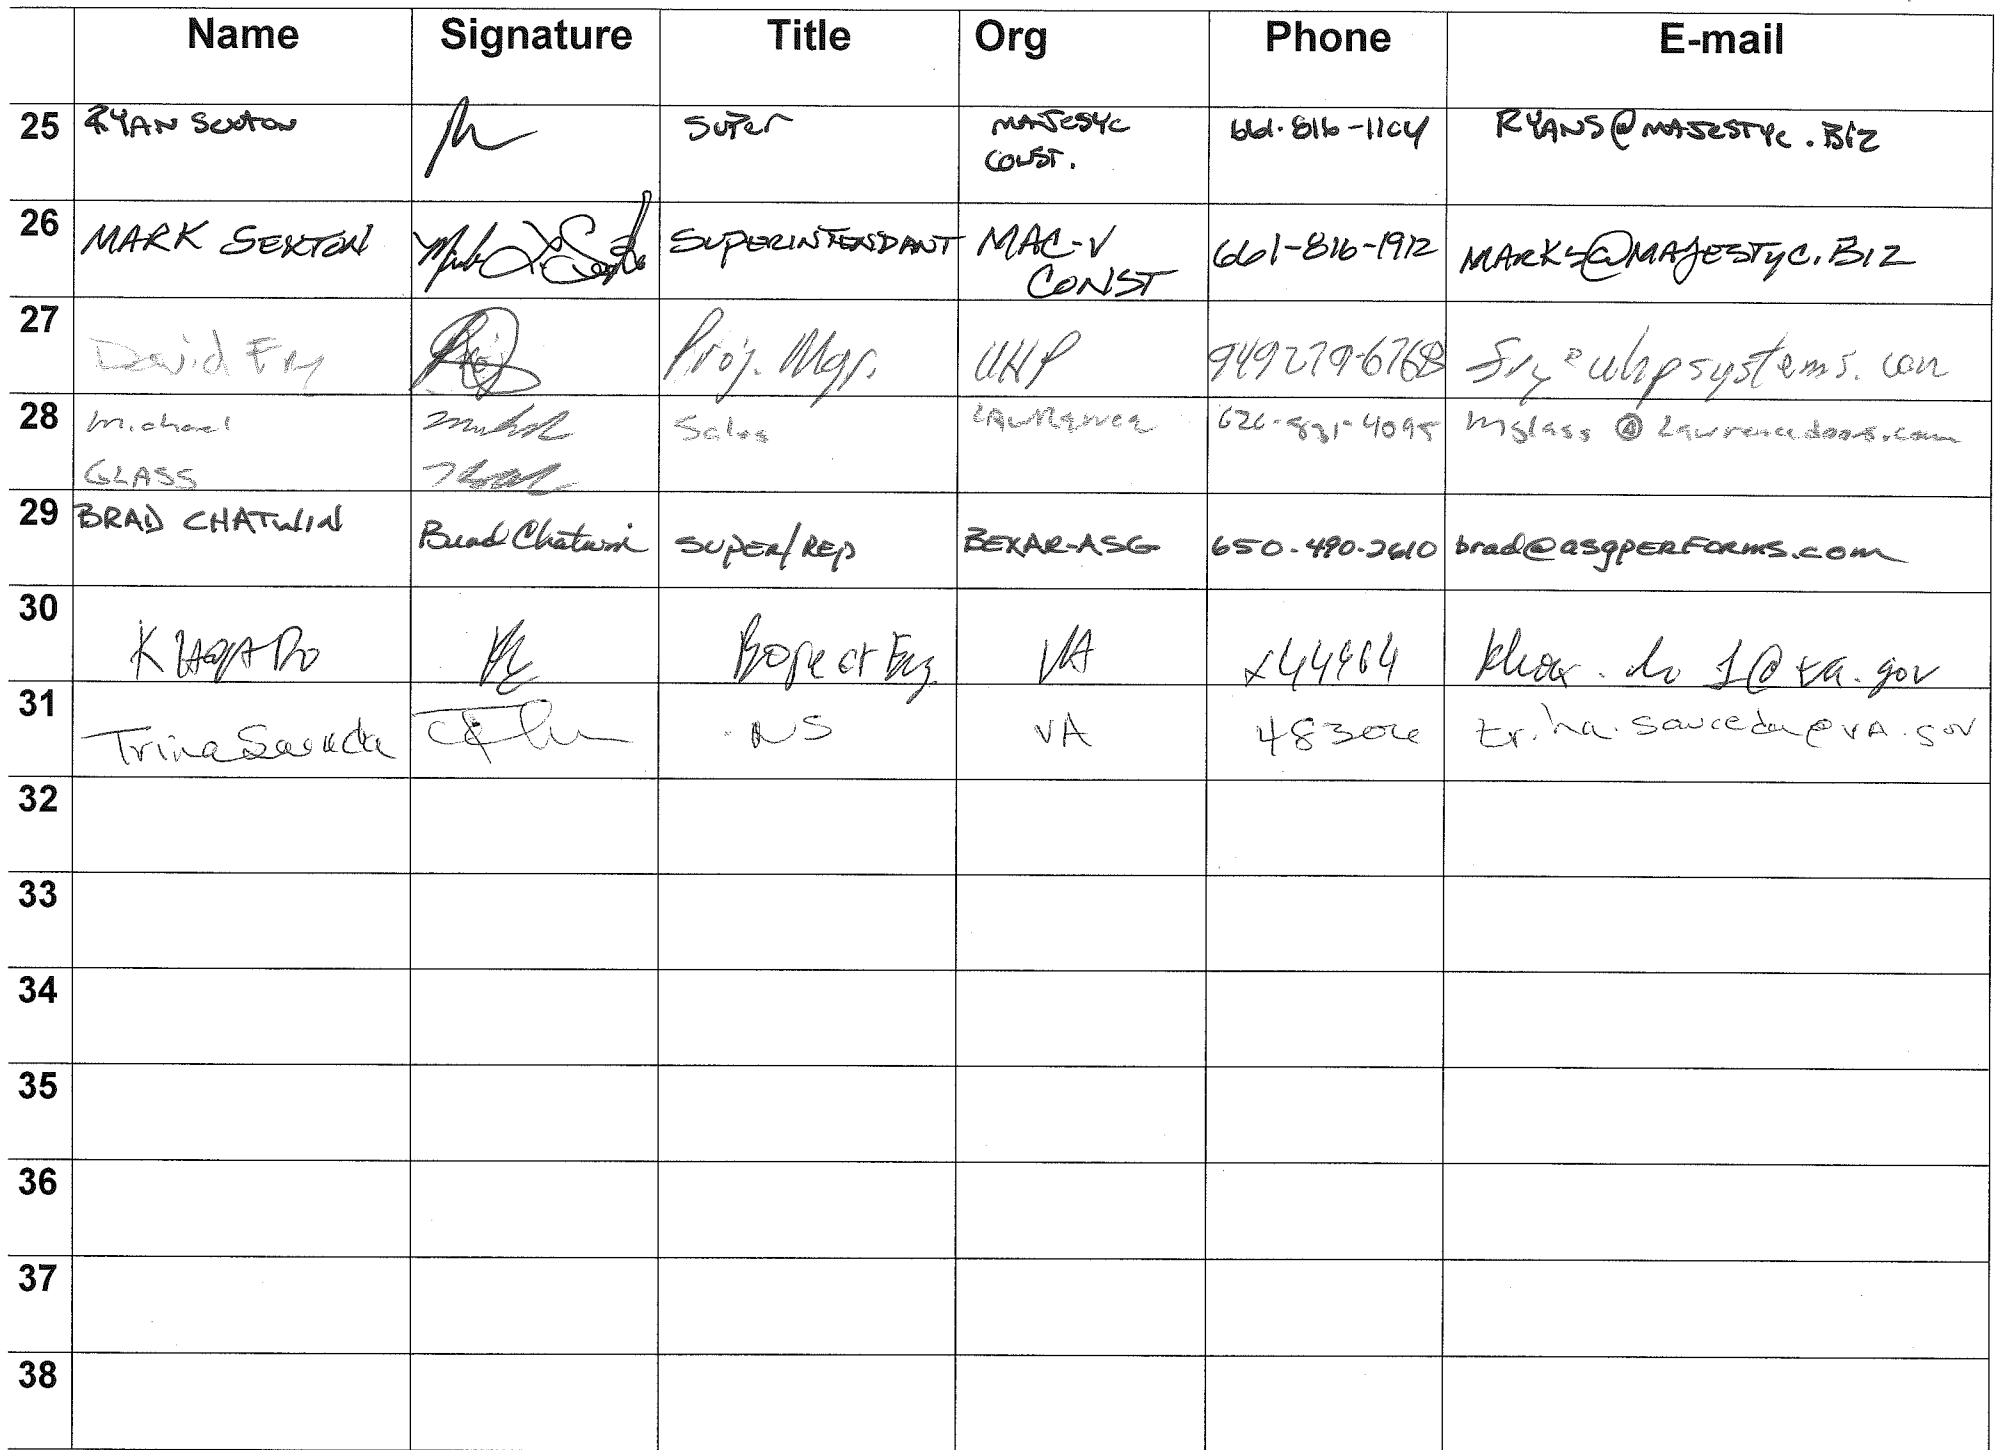 Name Signature Title Org Phone E-mail
25 RYAN Sexton Super MAJESYC CONST. 661-816-1104 RYANS@MAJESTYC.BIZ
26 MARK SEXTON SUPERINTENDANT MAC-V CONST 661-816-1912 MARKS@MAJESTYC.BIZ
27 David Fry Proj. Mgr. UHP 949279-6768 fry@uhpsystems.com
28 Michael GLASS Sales LAWRENCE 626-831-4095 mglass@Lawrencedoors.com
29 BRAD CHATWIN Brad Chatwin SUPER/REP BEXAR-ASG 650-490-2610 brad@asgPERFORMS.com
30 KHOA DO Project Eng. VA x44964 khoa.do1@va.gov
31 Trina Sauceda NS VA trina.sauceda@VA.gov
32
33
34
35
36
37
38